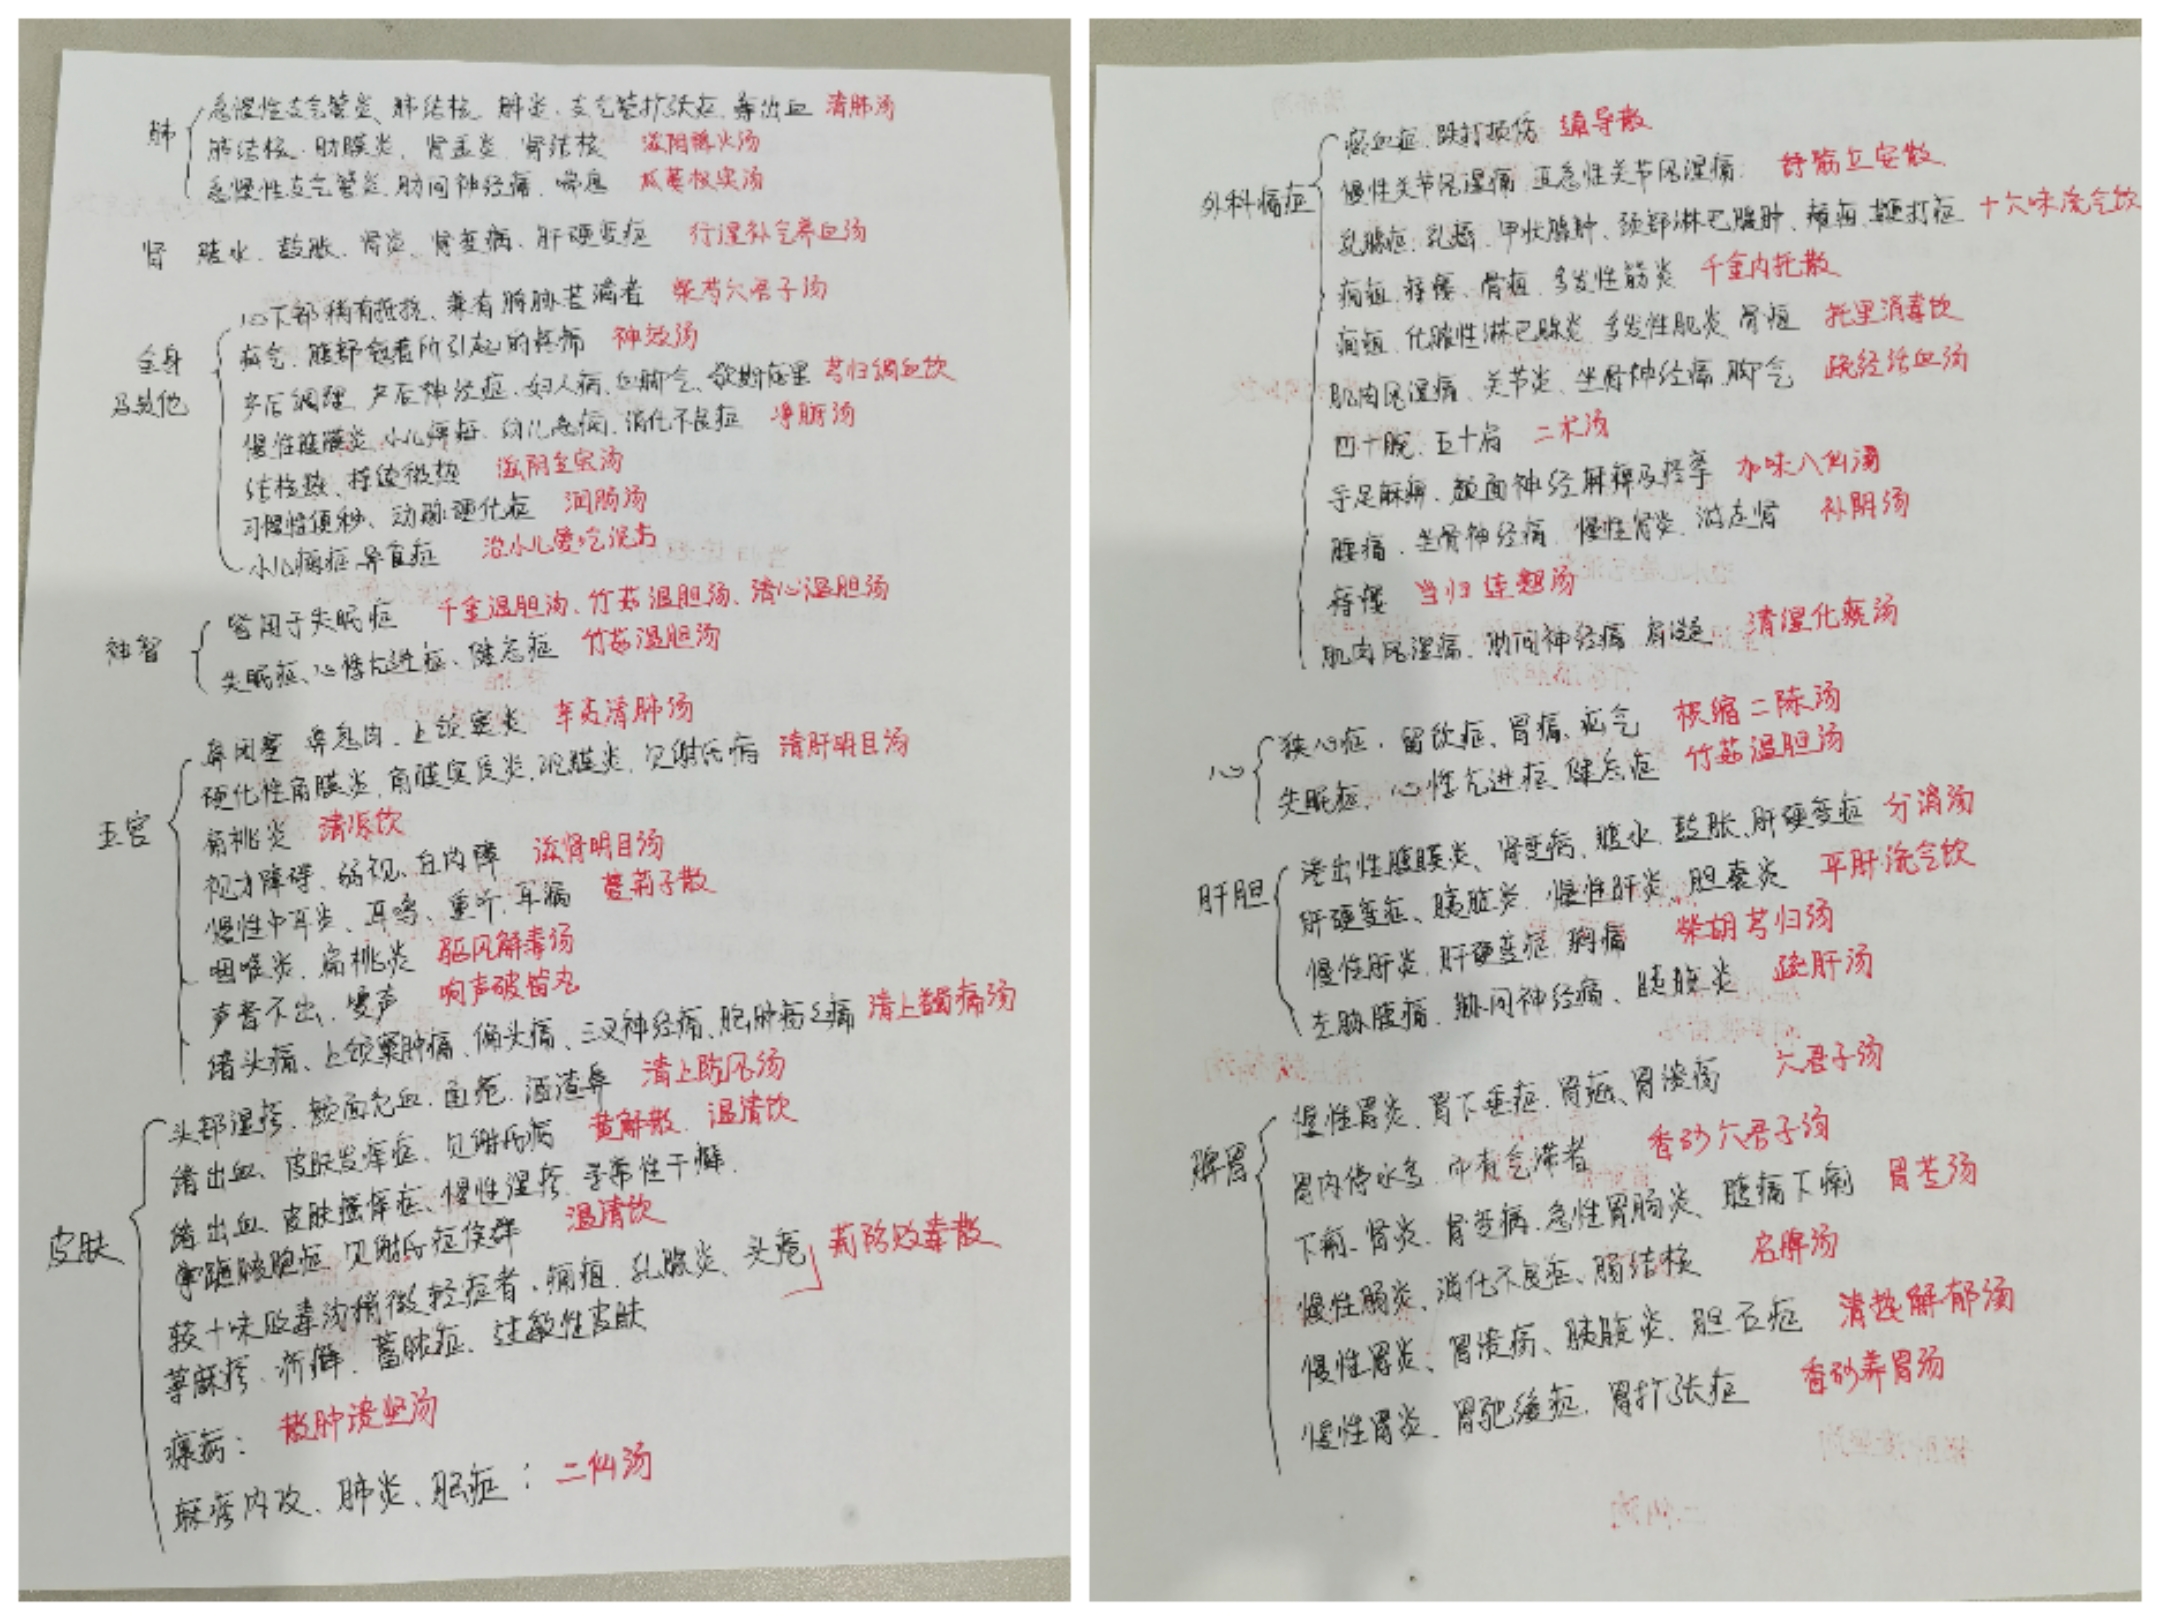 肺
急慢性支气管炎、肺结核、肺炎、支气管扩张症、鼻出血 清肺汤
肺结核、肋膜炎、肾盂炎、肾结核 滋阴降火汤
急慢性支气管炎、肋间神经痛、喘息 瓜蒌枳实汤
肾 腹水、鼓胀、肾炎、肾变病、肝硬变症 行湿补气养血汤
全身及其他
心下部稍有抵抗、兼有胸胁苦满者 柴芍六君子汤
疝气、腹部 所引起的疼痛 神效汤
产后调理、产后神经症、妇人病、血脚气、歇斯底里 芎归调血饮
慢性腹膜炎、小儿 、幼儿 病、消化不良症 浄腑汤
结核热、持续微热 滋阴至宝汤
习惯性便秘、动脉硬化症 润肠汤
小儿 症、异食症 治小儿爱吃泥方
神智
皆用于失眠症 千金温胆汤、竹茹温胆汤、清心温胆汤
失眠症、心悸亢进症、健忘症 竹茹温胆汤
五官
鼻闭塞、鼻息肉、上颌窦炎 辛夷清肺汤
硬化性角膜炎、角膜实质炎、巩膜炎、贝谢氏病 清肝明目汤
扁桃炎 清 饮
视力障碍、弱视、白内障 滋肾明目汤
慢性中耳炎、耳鸣、重听、耳漏 蔓荆子散
咽喉炎、扁桃炎 驱风解毒汤
声音不出、嗄声 响声破笛丸
诸头痛、上颌窦肿痛、偏头痛、三叉神经痛、脑肿疡之痛 清上蠲痛汤
皮肤
头部湿疹、颜面充血、面疱、酒渣鼻 清上防风汤
诸出血、皮肤发痒症、贝谢氏病 黄解散、温清饮
诸出血、皮肤搔痒症、慢性湿疹、寻常性干癣、
掌蹠脓胞症、贝谢氏症侯群 温清饮
较十味败毒汤稍微轻症者、痈疽、乳腺炎、头疮
荨麻疹、疥癣、蓄脓症、过敏性皮肤 荆防败毒散
瘰疬： 散肿溃坚汤
麻疹内攻、肺炎、肛症：二仙汤
外科病症
瘀血症、跌打损伤 通导散
慢性关节风湿痛、亚急性关节风湿痛： 舒筋立安散
乳腺症、乳癌、甲状腺肿、颈部淋巴腺肿、 、鞭打症 十六味流气饮
痈疽、痔瘘、骨疽、多发性筋炎 千金内托散
痈疽、化脓性淋巴腺炎、多发性肌炎、骨疽 托里消毒饮
肌肉风湿痛、关节炎、坐骨神经痛、脚气 疏经活血汤
四十腕、五十肩 二术汤
手足麻痹、颜面神经麻痹及痉挛 加味八仙汤
腰痛、坐骨神经痛、慢性肾炎、游走肾 补阴汤
痔瘘 当归连翘汤
肌肉风湿痛、肋间神经痛、肩凝 清湿化痰汤
心
狭心症、留饮症、胃痛、疝气 枳缩二陈汤
失眠症、心悸亢进症、健忘症 竹茹温胆汤
肝胆
渗出性腹膜炎、肾变病、腹水、鼓胀、肝硬变症 分消汤
肝硬变症、胰脏炎、慢性肝炎、胆囊炎 平肝流气饮
慢性肝炎、肝硬变症、胸痛 柴胡芎归汤
左胁腹痛、肋间神经痛、胰脏炎 疏肝汤
脾胃
慢性胃炎、胃下垂症、胃癌、胃溃疡 六君子汤
胃内停水多、中有气滞者 香砂六君子汤
下痢、肾炎、肾变病、急性胃肠炎、腹痛下痢 胃苓汤
慢性肠炎、消化不良症、肠结核 启脾汤
慢性胃炎、胃溃疡、胰脏炎、胆石症 清热解郁汤
慢性胃炎、胃弛缓症、胃扩张症 香砂养胃汤